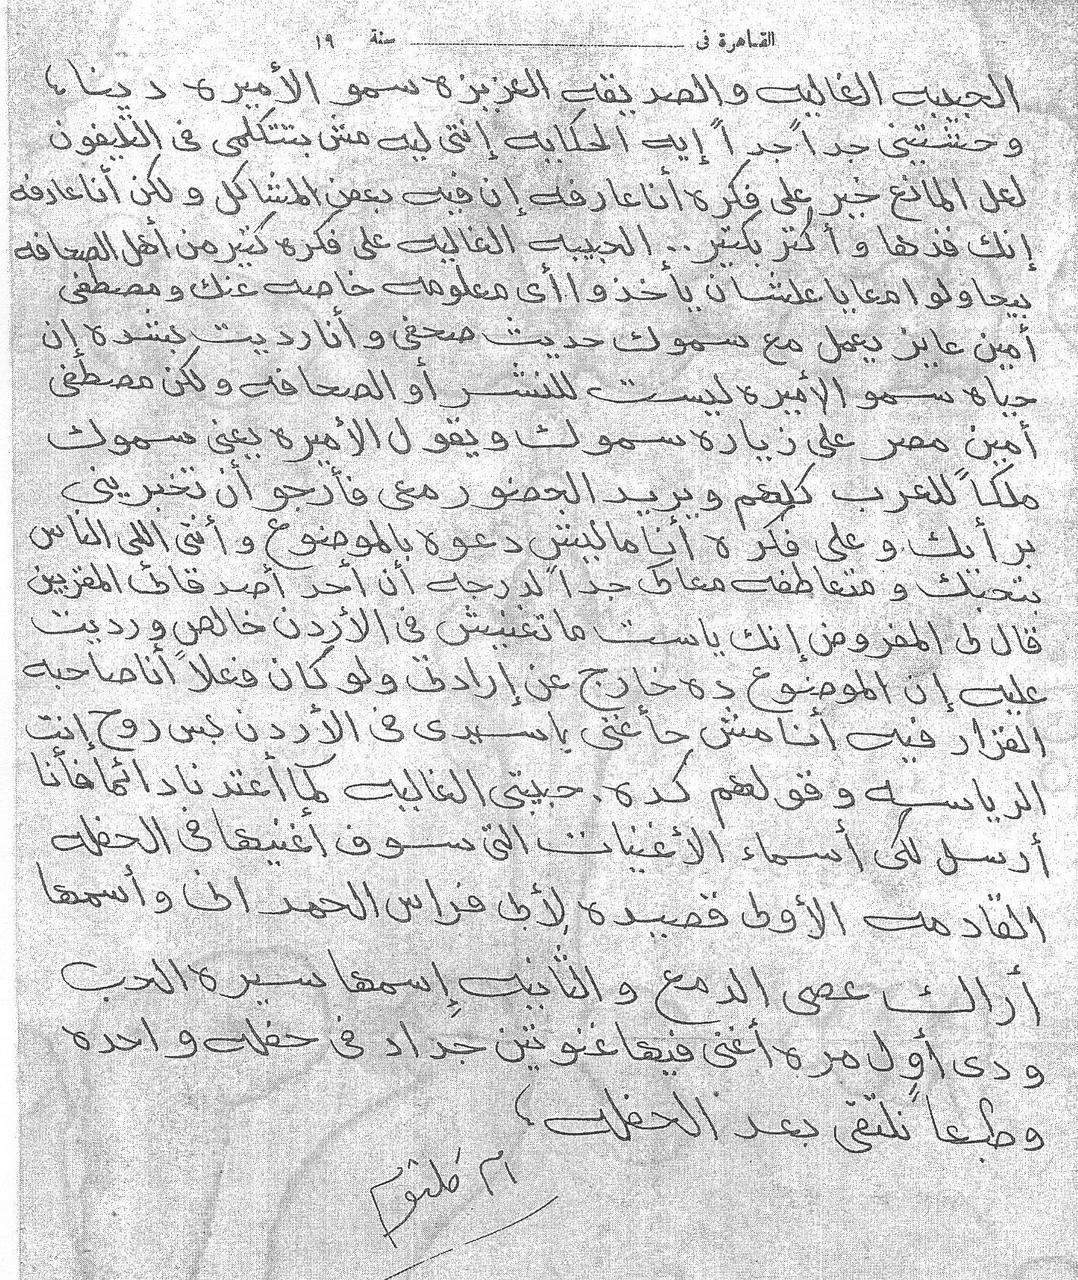 القاهرة فى ــــــــــــــــــــ سنة ١٩
الحبيبه الغاليه والصديقه العزيزه سمو الأميره دينا ،
وحشتيني جداً جداً إيه الحكايه إنتى ليه مش بتتكلمى فى التليفون
لعل المانع خير على فكره أنا عارفه إن فيه بعض المشاكل ولكن أنا عارفه
إنك قدها وأكتر بكتير .. الحبيبه الغاليه على فكره كتير من أهل الصحافه
بيحاولوا معايا علشان يأخذوا أى معلومه خاصه عنك ومصطفى
أمين عايز يعمل مع سموك حديث صحفى وأنا رديت بشده إن
حياه سمو الأميره ليست للنشر أو الصحافه ولكن مصطفى
أمين مصر على زياره سموك ويقول الأميره يعنى سموك
ملكاً للعرب كلهم ويريد الحضور معى فأرجو أن تخبرينى
برأيك وعلى فكره أنا ماليش دعوه بالموضوع وأنتى اللى الناس
بتحبك ومتعاطفه معاكى جداً لدرجه أن أحد أصدقائى المقربين
قال لى المفروض إنك ياست ماتغنيش فى الأردن خالص ورديت
عليه إن الموضوع ده خارج عن إرادتى ولو كان فعلاً أنا صاحبه
القرار فيه أنا مش حأغنى ياسيدى فى الأردن بس روح إنت
الرياسه وقولهم كده . حبيبتى الغاليه كما أعتدنا دائماً فأنا
أرسل لكى أسماء الأغنيات التى سوف أغنيها فى الحفله
القادمه الأولى قصيده لأبى فراس الحمدانى وأسمها
أراك عصى الدمع والثانيه إسمها سيرة الحب
ودى أول مره أغنى فيها غنوتين جداد فى حفله واحده
وطبعاً نلتقى بعد الحفله ،
ام كلثوم